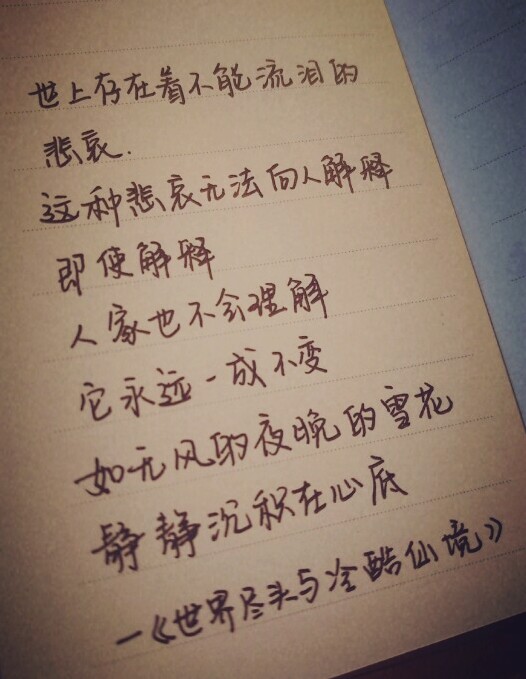 世上存在着不能流泪的
悲哀.
这种悲哀无法向人解释
即使解释
人家也不会理解
它永远一成不变
如无风的夜晚的雪花
静静沉积在心底
—《世界尽头与冷酷仙境》